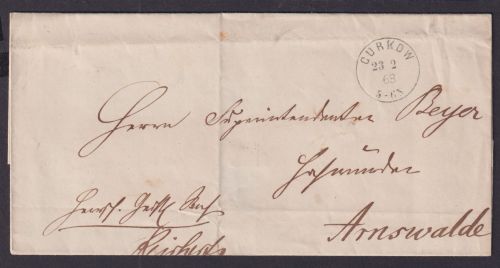 GURKOW
23 2
68
5-6N
Herrn Superintendenten Beyer
Hochwürden
Arnswalde
Herrsch.